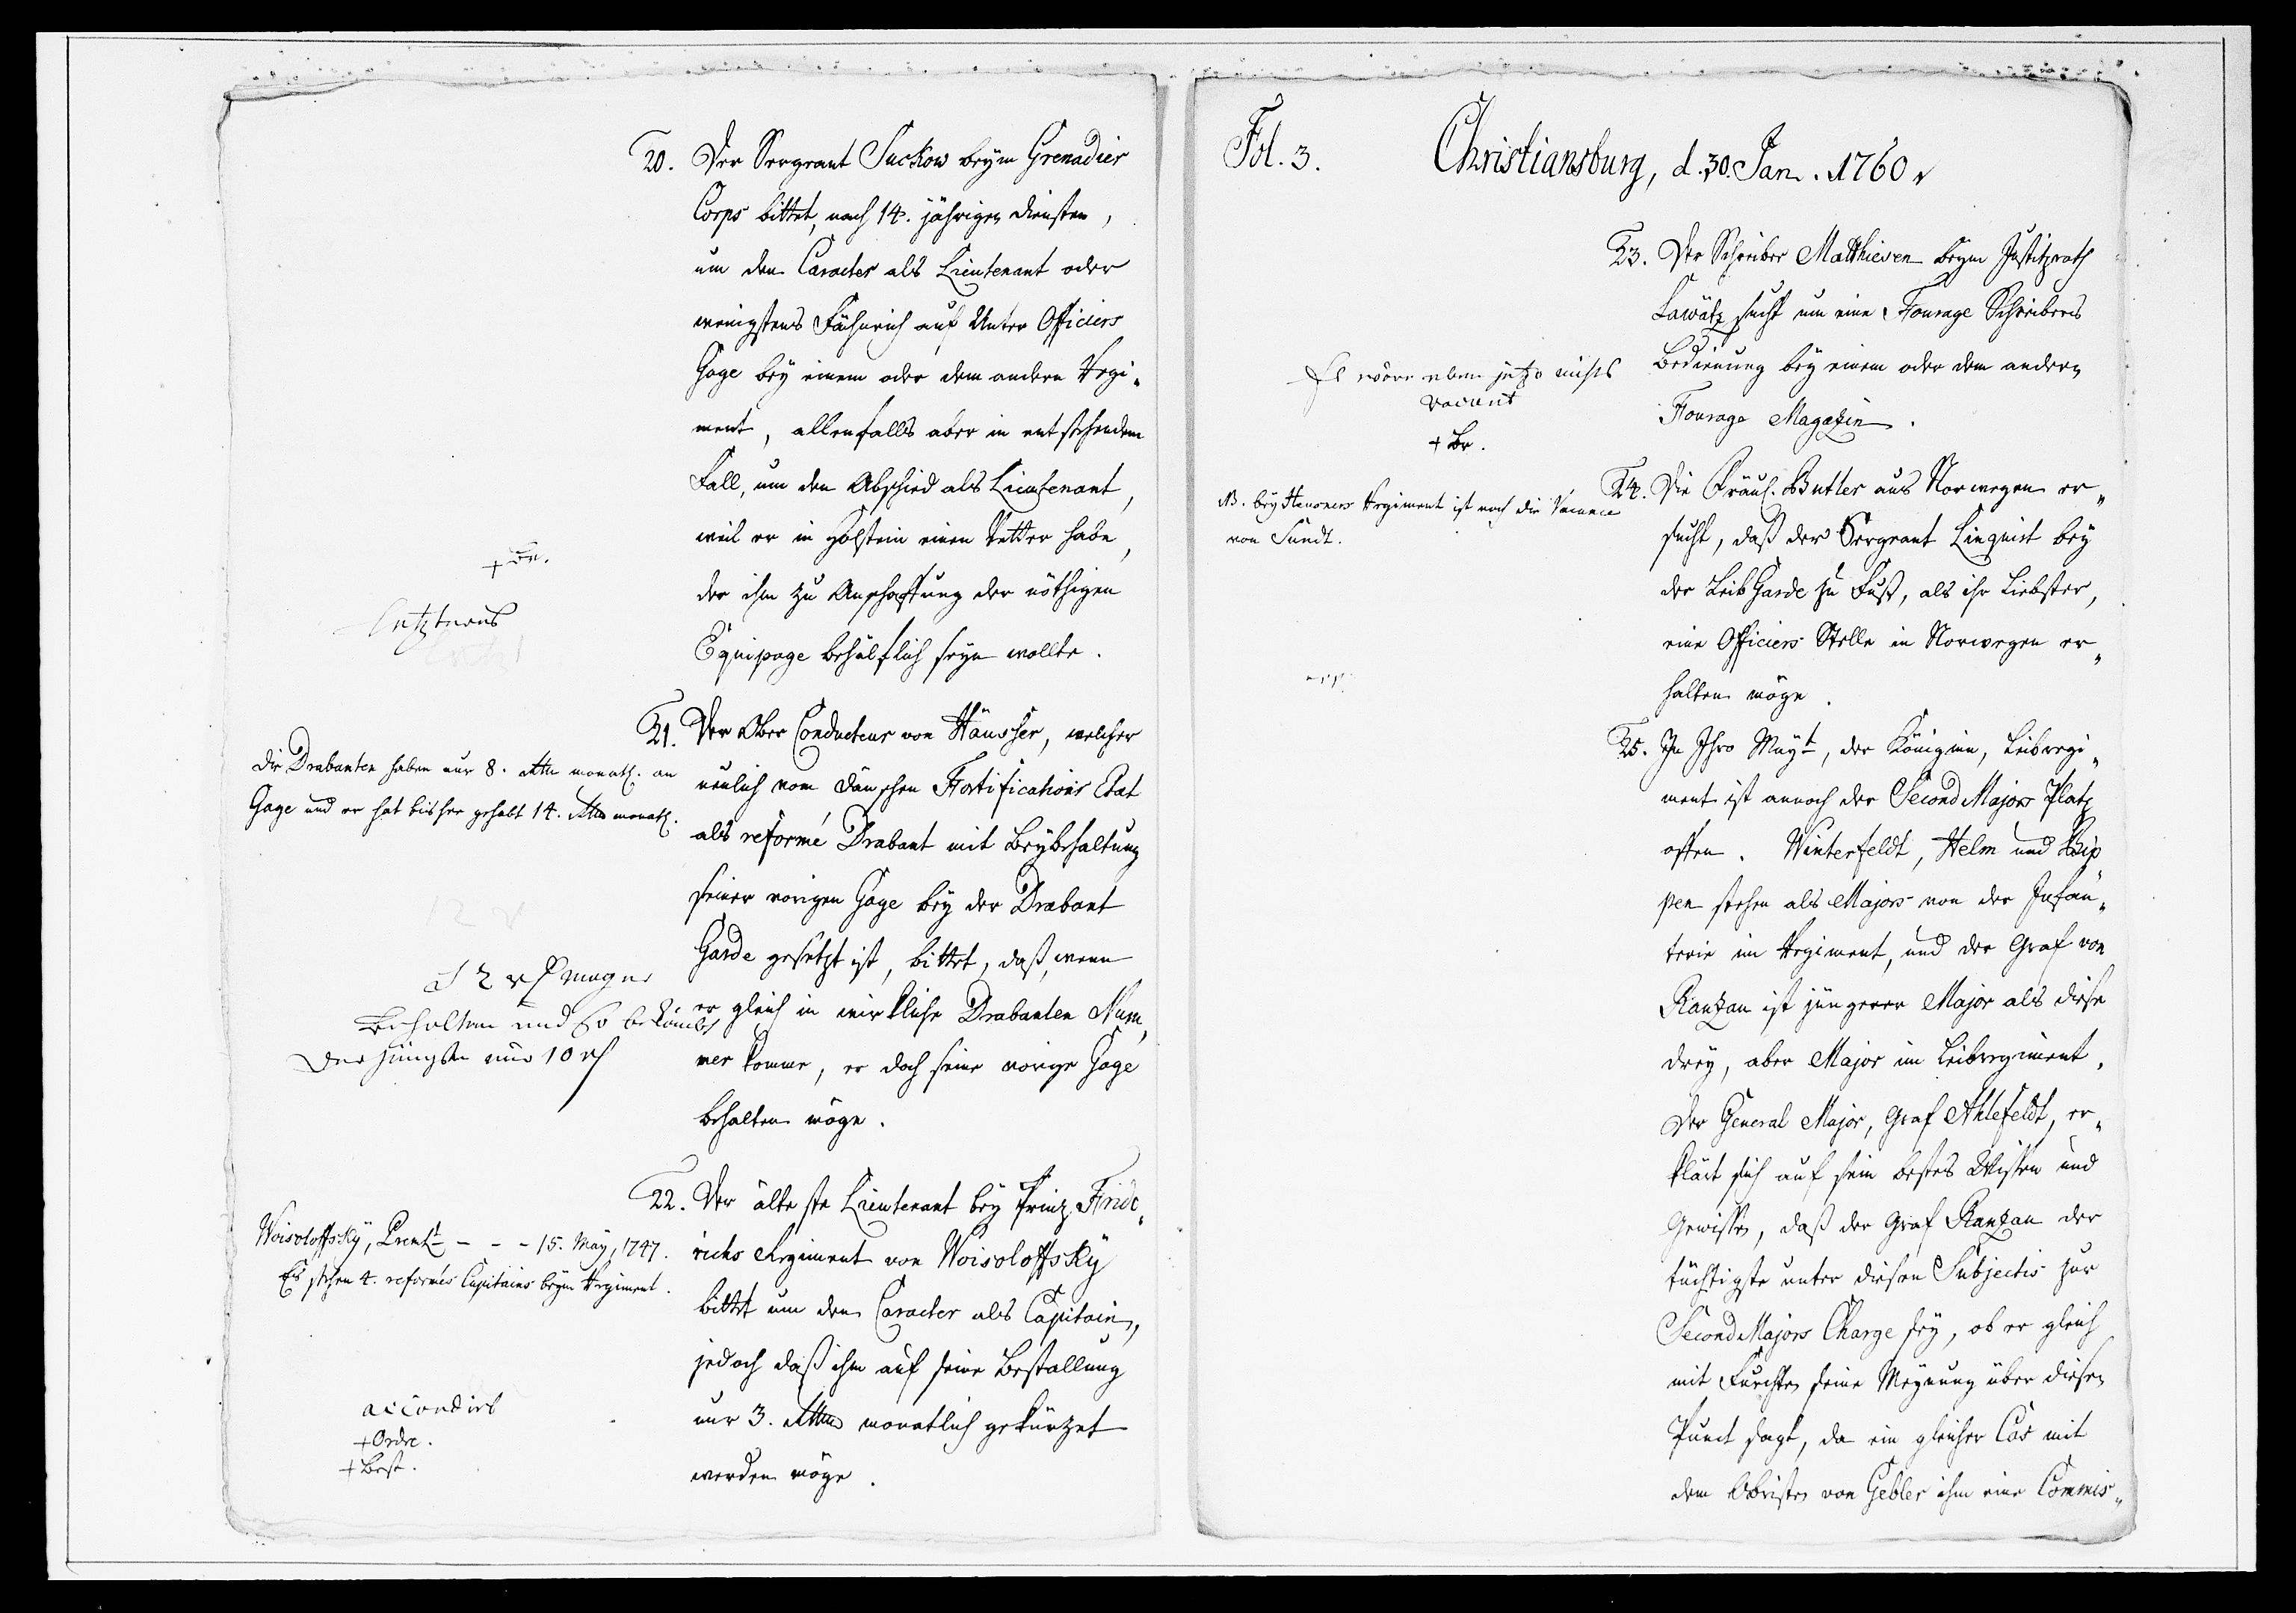 20. Der Sergeant Suckow beym Grenadier
Corps bittet, nach 14. jährigen Diensten,
um den Caracter als Lieutenant oder
wenigstens Fähnrich auf Unter Officiers
Gage bey einem oder dem andern Regi-
ment, allenfalls aber in entstehendem
Fall, um den Abschied als Lieutenant,
weil er in Holstein einen Vetter habe,
der ihm zu Anschaffung der nöthigen
Equipage behülflich seyn wollte.
+ Br.
letzteres
21. Der Ober Conducteur von Häusser, welcher
neulich vom Dänschen Fortifications Etat
als reformé Drabant mit Beybehaltung
seiner vorigen Gage bey der Drabant
Garde gesetzt ist, bittet, daß, wenn
er gleich in wirkliche Drabanten Num-
mer komme, er doch seine vorige Gage
behalten möge.
Die Drabanten haben nur 8. Rthlr monatl. an
Gage und er hat bisher gehabt 14. Rthlr monatl.
12 r
behalten und so
der jüngste nur 10 r
22. Der älteste Lieutenant bey Prinz Fride-
richs Regiment von Woisoloffsky
bittet um den Caracter als Capitain,
jedoch daß ihm auf seine Bestallung
nur 3. Rthlr monatlich gekürzet
werden möge.
Woisoloffsky, Premt - - - 15. May, 1747.
Es stehen 4. reformés Capitains beym Regiment.
accordirt
+ Ordre.
+ Best.
Fol. 3. Christiansburg, d. 30. Jan. 1760.
23. Der Schreiber Matthiesen beym Justitzrath
Lawätz sucht um eine Fourage Schreibers
Bedienung bey einem oder dem andern
Fourage Magazin.
Es wäre eben jetzo nichts
vacant
+ Br.
24. Die Fräul. Butler aus Norwegen er-
sucht, daß der Sergeant Linquist bey
der Leib Garde zu Fuß, als ihr Liebster,
eine Officiers Stelle in Norwegen er-
halten möge.
NB. bey Heusners Regiment ist noch die Vacance
von Sundt.
25. In Ihro Mayt, der Königinn, Leibregi-
ment ist annoch der Second Majors Platz
offen. Winterfeldt, Helm und Bip
pen stehen als Majors von der Infan-
terie im Regiment, und der Graf von
Ranzau ist jüngerer Major als diese
drey, aber Major im Leibregiment.
Der General Major, Graf Ahlefeldt, er-
klärt sich auf sein bestes Wissen und
Gewissen, daß der Graf Ranzau der
tüchtigste unter diesen Subjectis zur
Second Majors Charge sey, ob er gleich
mit Furchten seine Meynung über diesen
Punct sagt, da ein gleicher Cas mit
dem Obristen von Gebler ihm eine Commis-